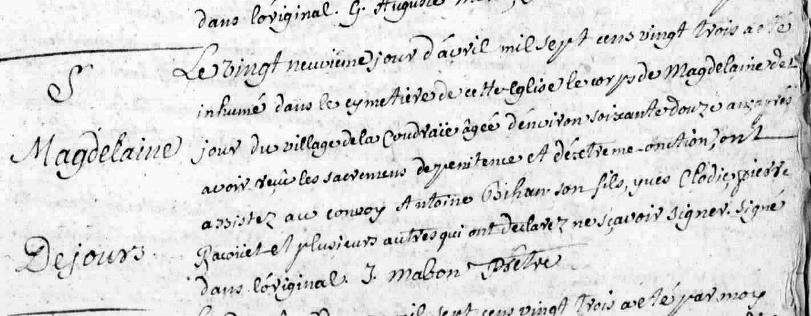 dans l'original. G. Auguste
S
Magdelaine
Dejours
Le vingt neuvieme jour d'avril mil sept cens vingt trois a eté
inhumé dans le cymetiere de cette Eglise le corps de Magdelaine de
jour du village de la Coudraie âgée d'environ soixante douze ans après
avoir reçû les sacremens de penitence et d'extreme-onction, ont
assistez au convoy Antoine Bihan son fils, yves Clodic, pierre
Racoüet et plusieurs autres qui ont declarez ne sçavoir signer. signé
dans l'original. J. Mabon Prêtre
mil sept cens vingt trois a eté par moy